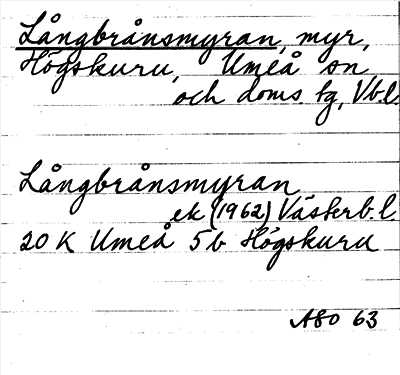 Långbrånsmyran, myr,
Högskuru, Umeå sn
och doms. tg, Vb.l.
Långbrånsmyran
ek (1962) Västerb.l.
20 K Umeå 5b Högskuru
ASO 63